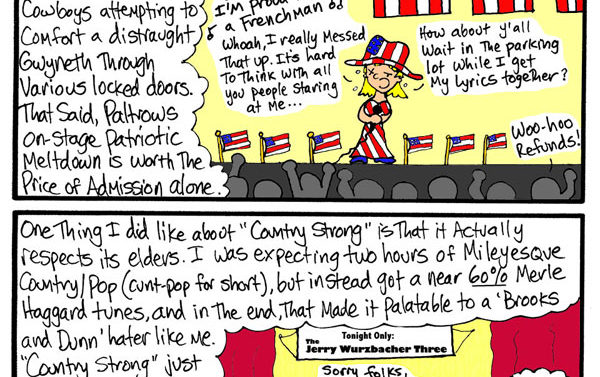 Cowboys attempting to
Comfort a distraught
Gwyneth Through
Various locked doors.
That Said, Paltrows
on-stage Patriotic
Meltdown is worth The
Price of Admission alone.
I'm proud
a Frenchman
Whoah, I really Messed
That up. It's hard
To Think with all
you people staring
at Me...
How about y'all
Wait in The parking
lot while I get
My Lyrics together?
Woo-hoo
Refunds!
One Thing I did like about "Country Strong" is That it Actually
respects its elders. I was expecting two hours of Mileyesque
Country/Pop (cunt-pop for short), but instead got a near 60% Merle
Haggard tunes, and in The end, That Made it Palatable to a 'Brooks
and Dunn' hater like Me.
"Country Strong" just
Tonight Only:
The Jerry Wurzbacher Three
Sorry folks,